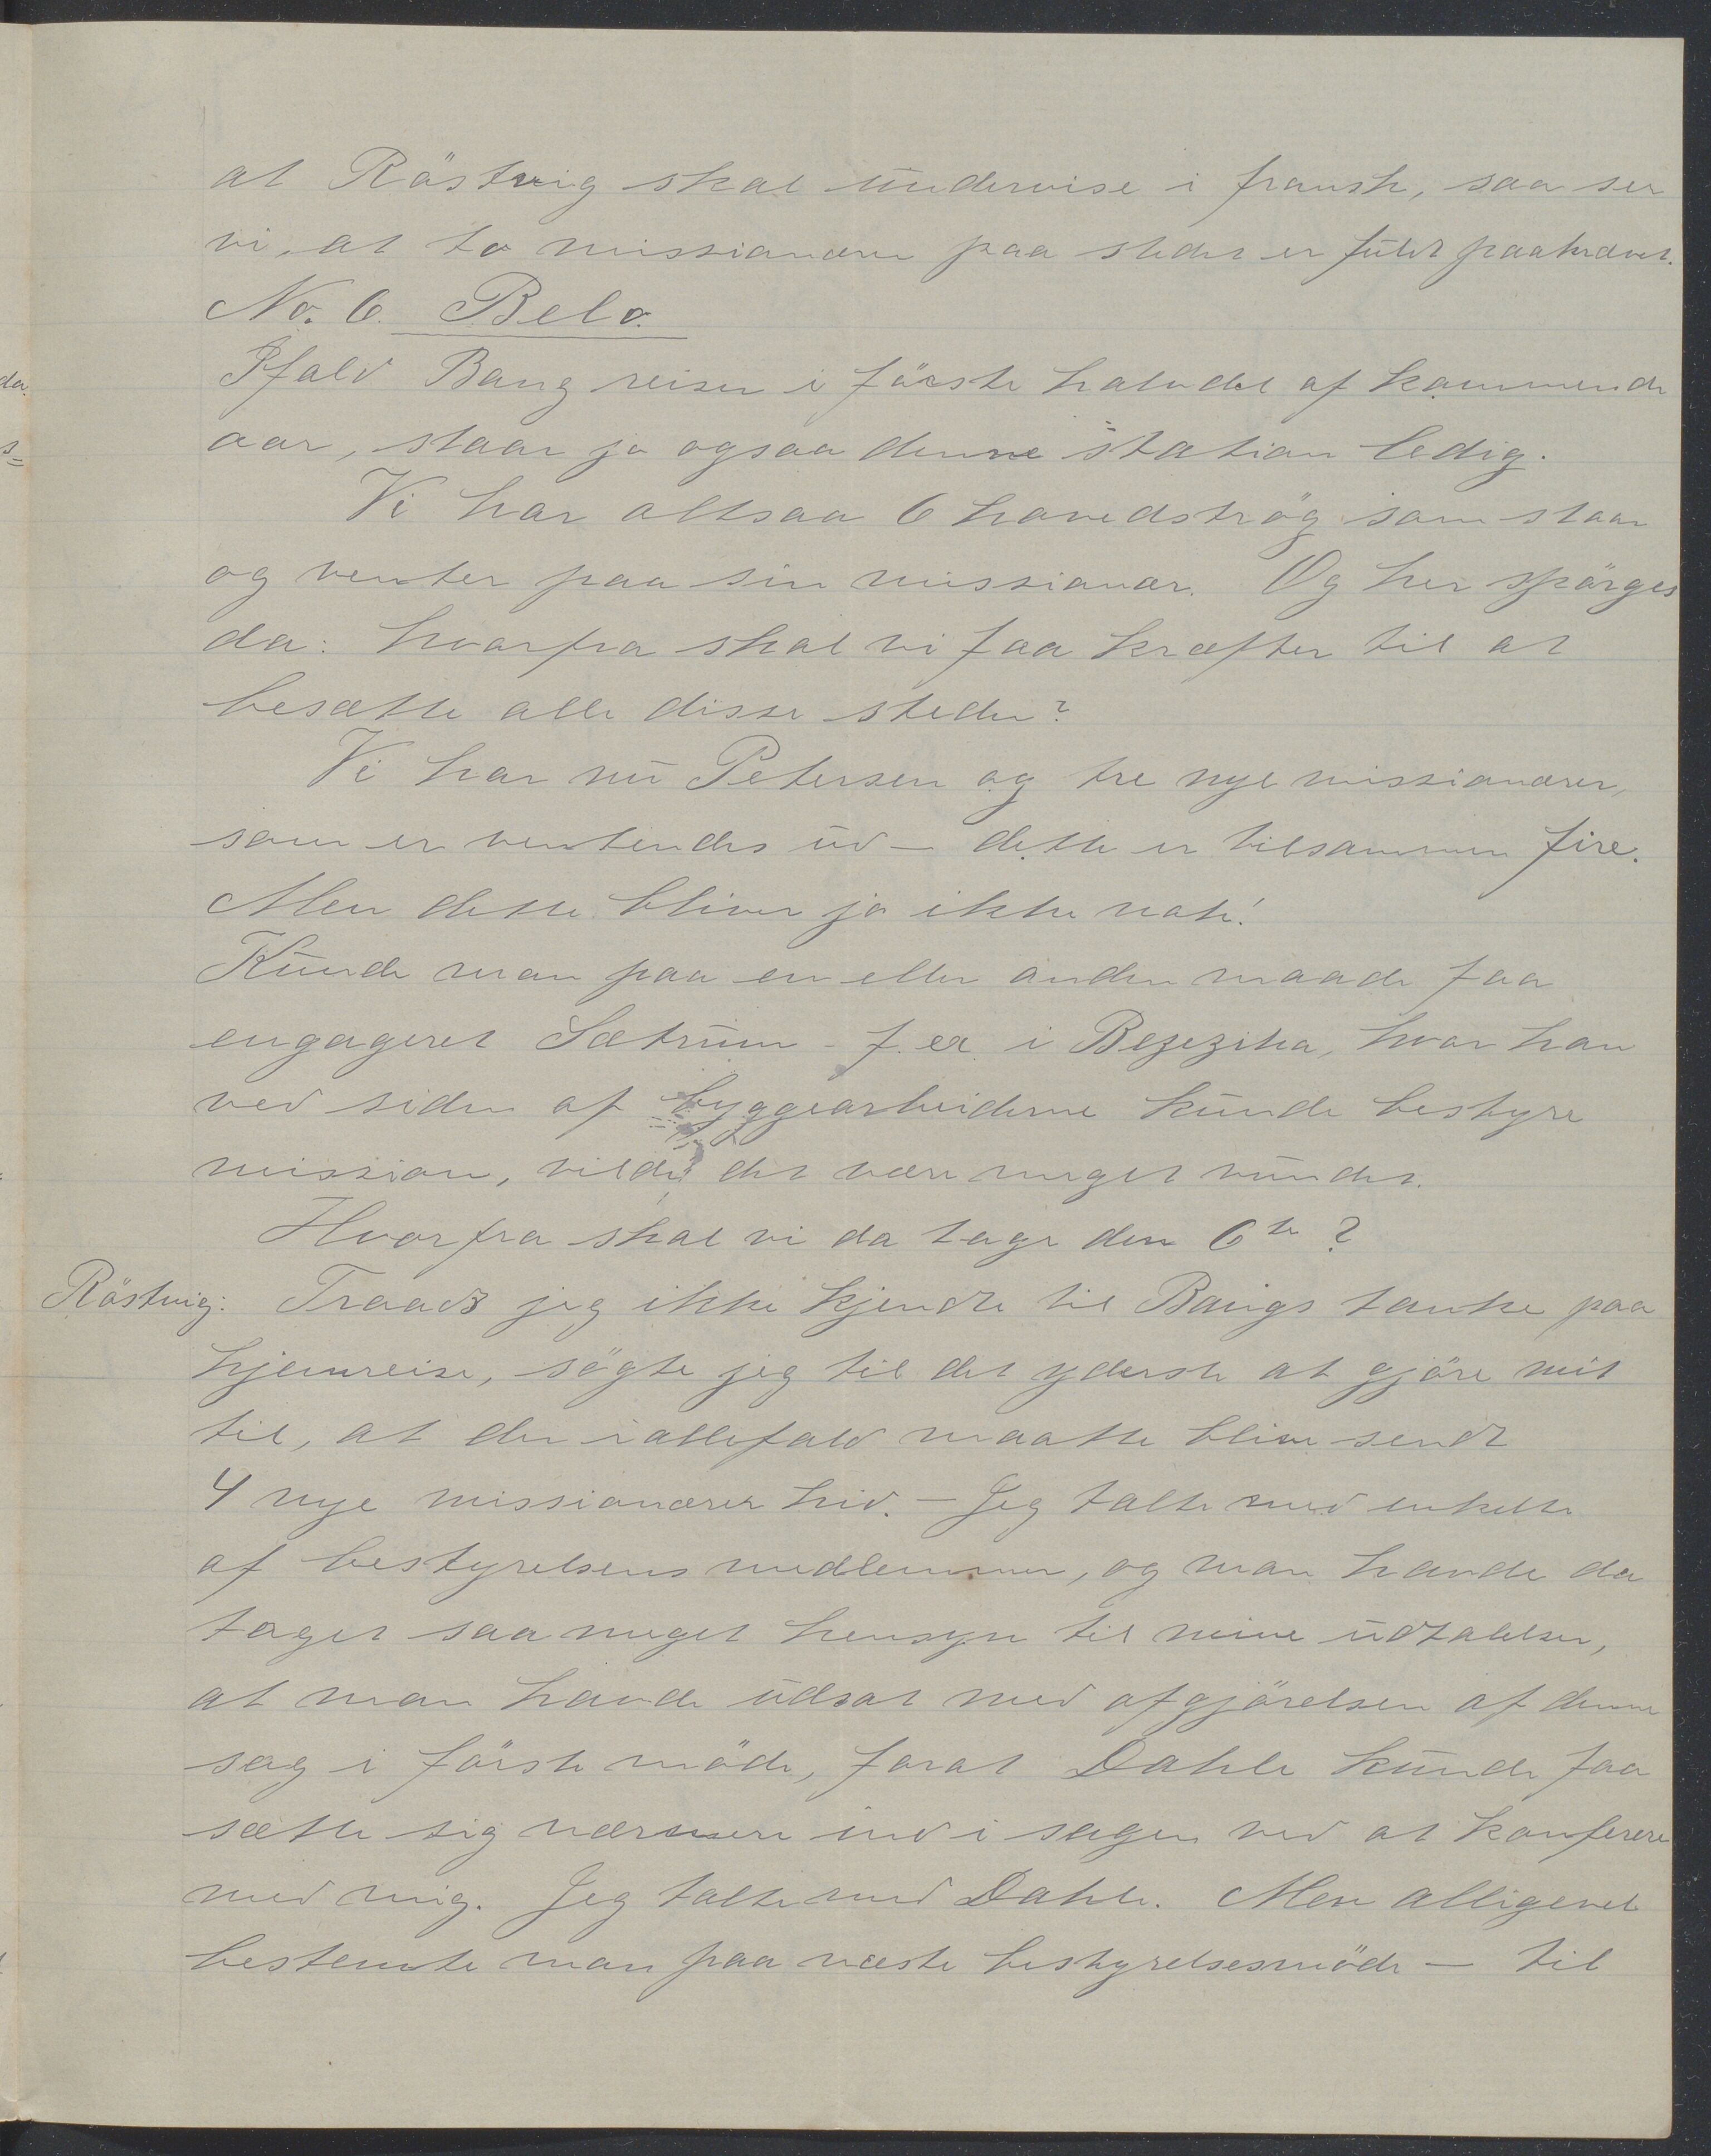 at Röstvig skal undervise i fransk, saa ser
vi, at to missionærer paa stedet er fuldt paakrævet.
No. 6. Belo.
Ifald Bang reiser i förste halvdel af kommende
aar, staar jo ogsaa denne station ledig.
Vi har altsaa 6 hovedströg som staar
og venter paa sin missionær. Og her spörges
da: hvorfra skal vi faa kræfter til at
besætte alle disse steder?
Vi har nu Petersen og tre nye missionærer,
som er ventendes ud – dette er tilsammen fire.
Men dette bliver jo ikke nok!
Kunde man paa en eller anden maade faa
engageret Sætrum – f. ex. i Bezezika, hvor han
ved siden af byggearbeiderne kunde bestyre
mission, vilde det være meget vundet.
Hvorfra skal vi da tage den 6te?
Röstvig: Traads jeg ikke kjendte til Bangs tanke paa
hjemreise, sögte jeg til det yderste at gjöre mit
til, at der iallefald maatte blive sendt
4 nye missionærer hid. – Jeg talte med enkelte
af bestyrelsens medlemmer, og man havde da
taget saa meget hensyn til mine udtalelser,
at man havde udsat med afgjörelsen af denne
sag i förste möde, forat Dahle kunde faa
sætte sig nærmere ind i sagen ved at konferere
med mig. Jeg talte med Dahle. Men alligevel
bestemte man paa næste bestyrelsesmöde – til